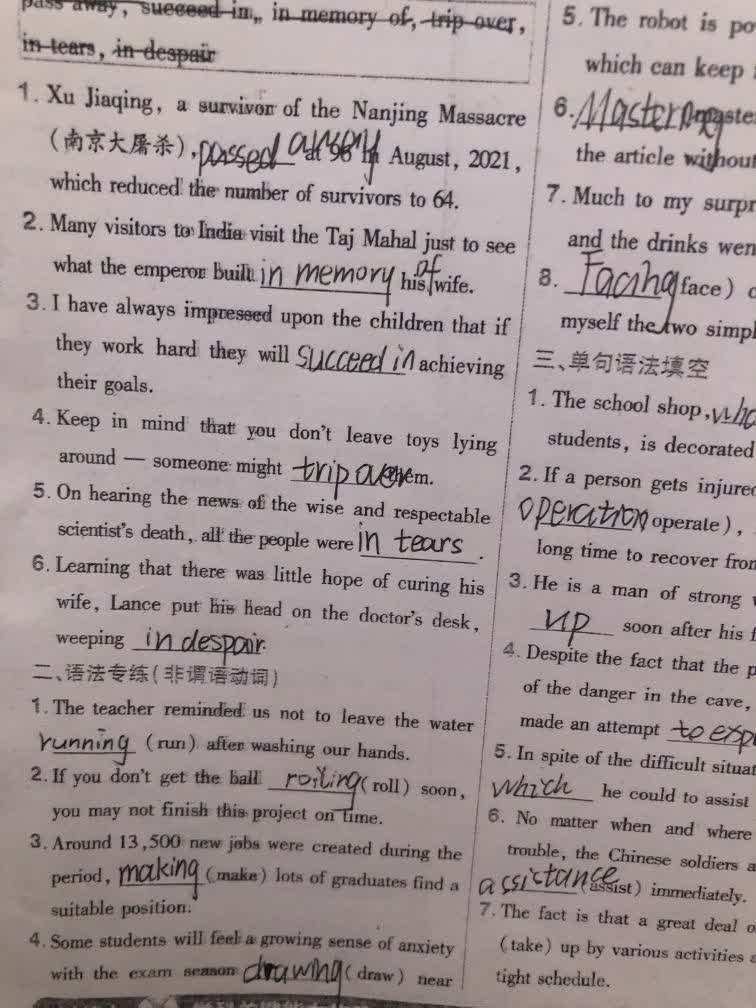 pass away, succeed in, in memory of, trip over,
in tears, in despair
1. Xu Jiaqing, a survivor of the Nanjing Massacre
(南京大屠杀), passed away at 96 in August, 2021,
which reduced the number of survivors to 64.
2. Many visitors to India visit the Taj Mahal just to see
what the emperor built in memory of his wife.
3. I have always impressed upon the children that if
they work hard they will succeed in achieving
their goals.
4. Keep in mind that you don't leave toys lying
around — someone might trip over them.
5. On hearing the news of the wise and respectable
scientist's death, all the people were in tears.
6. Learning that there was little hope of curing his
wife, Lance put his head on the doctor's desk,
weeping in despair.
二、语法专练(非谓语动词)
1. The teacher reminded us not to leave the water
running (run) after washing our hands.
2. If you don't get the ball rolling (roll) soon,
you may not finish this project on time.
3. Around 13,500 new jobs were created during the
period, making (make) lots of graduates find a
suitable position.
4. Some students will feel a growing sense of anxiety
with the exam season drawing (draw) near
5. The robot is
which can keep
6. Mastering
the article without
7. Much to my
and the drinks
8. Facing (face)
myself the two
三、单句语法填空
1. The school shop,
students, is decorated
2. If a person gets injured
operation (operate),
long time to recover from
3. He is a man of strong
up soon after his
4. Despite the fact that the
of the danger in the cave,
made an attempt to
5. In spite of the difficult
which he could to assist
6. No matter when and where
trouble, the Chinese soldiers
assictance (assist) immediately.
7. The fact is that a great deal
(take) up by various activities
tight schedule.